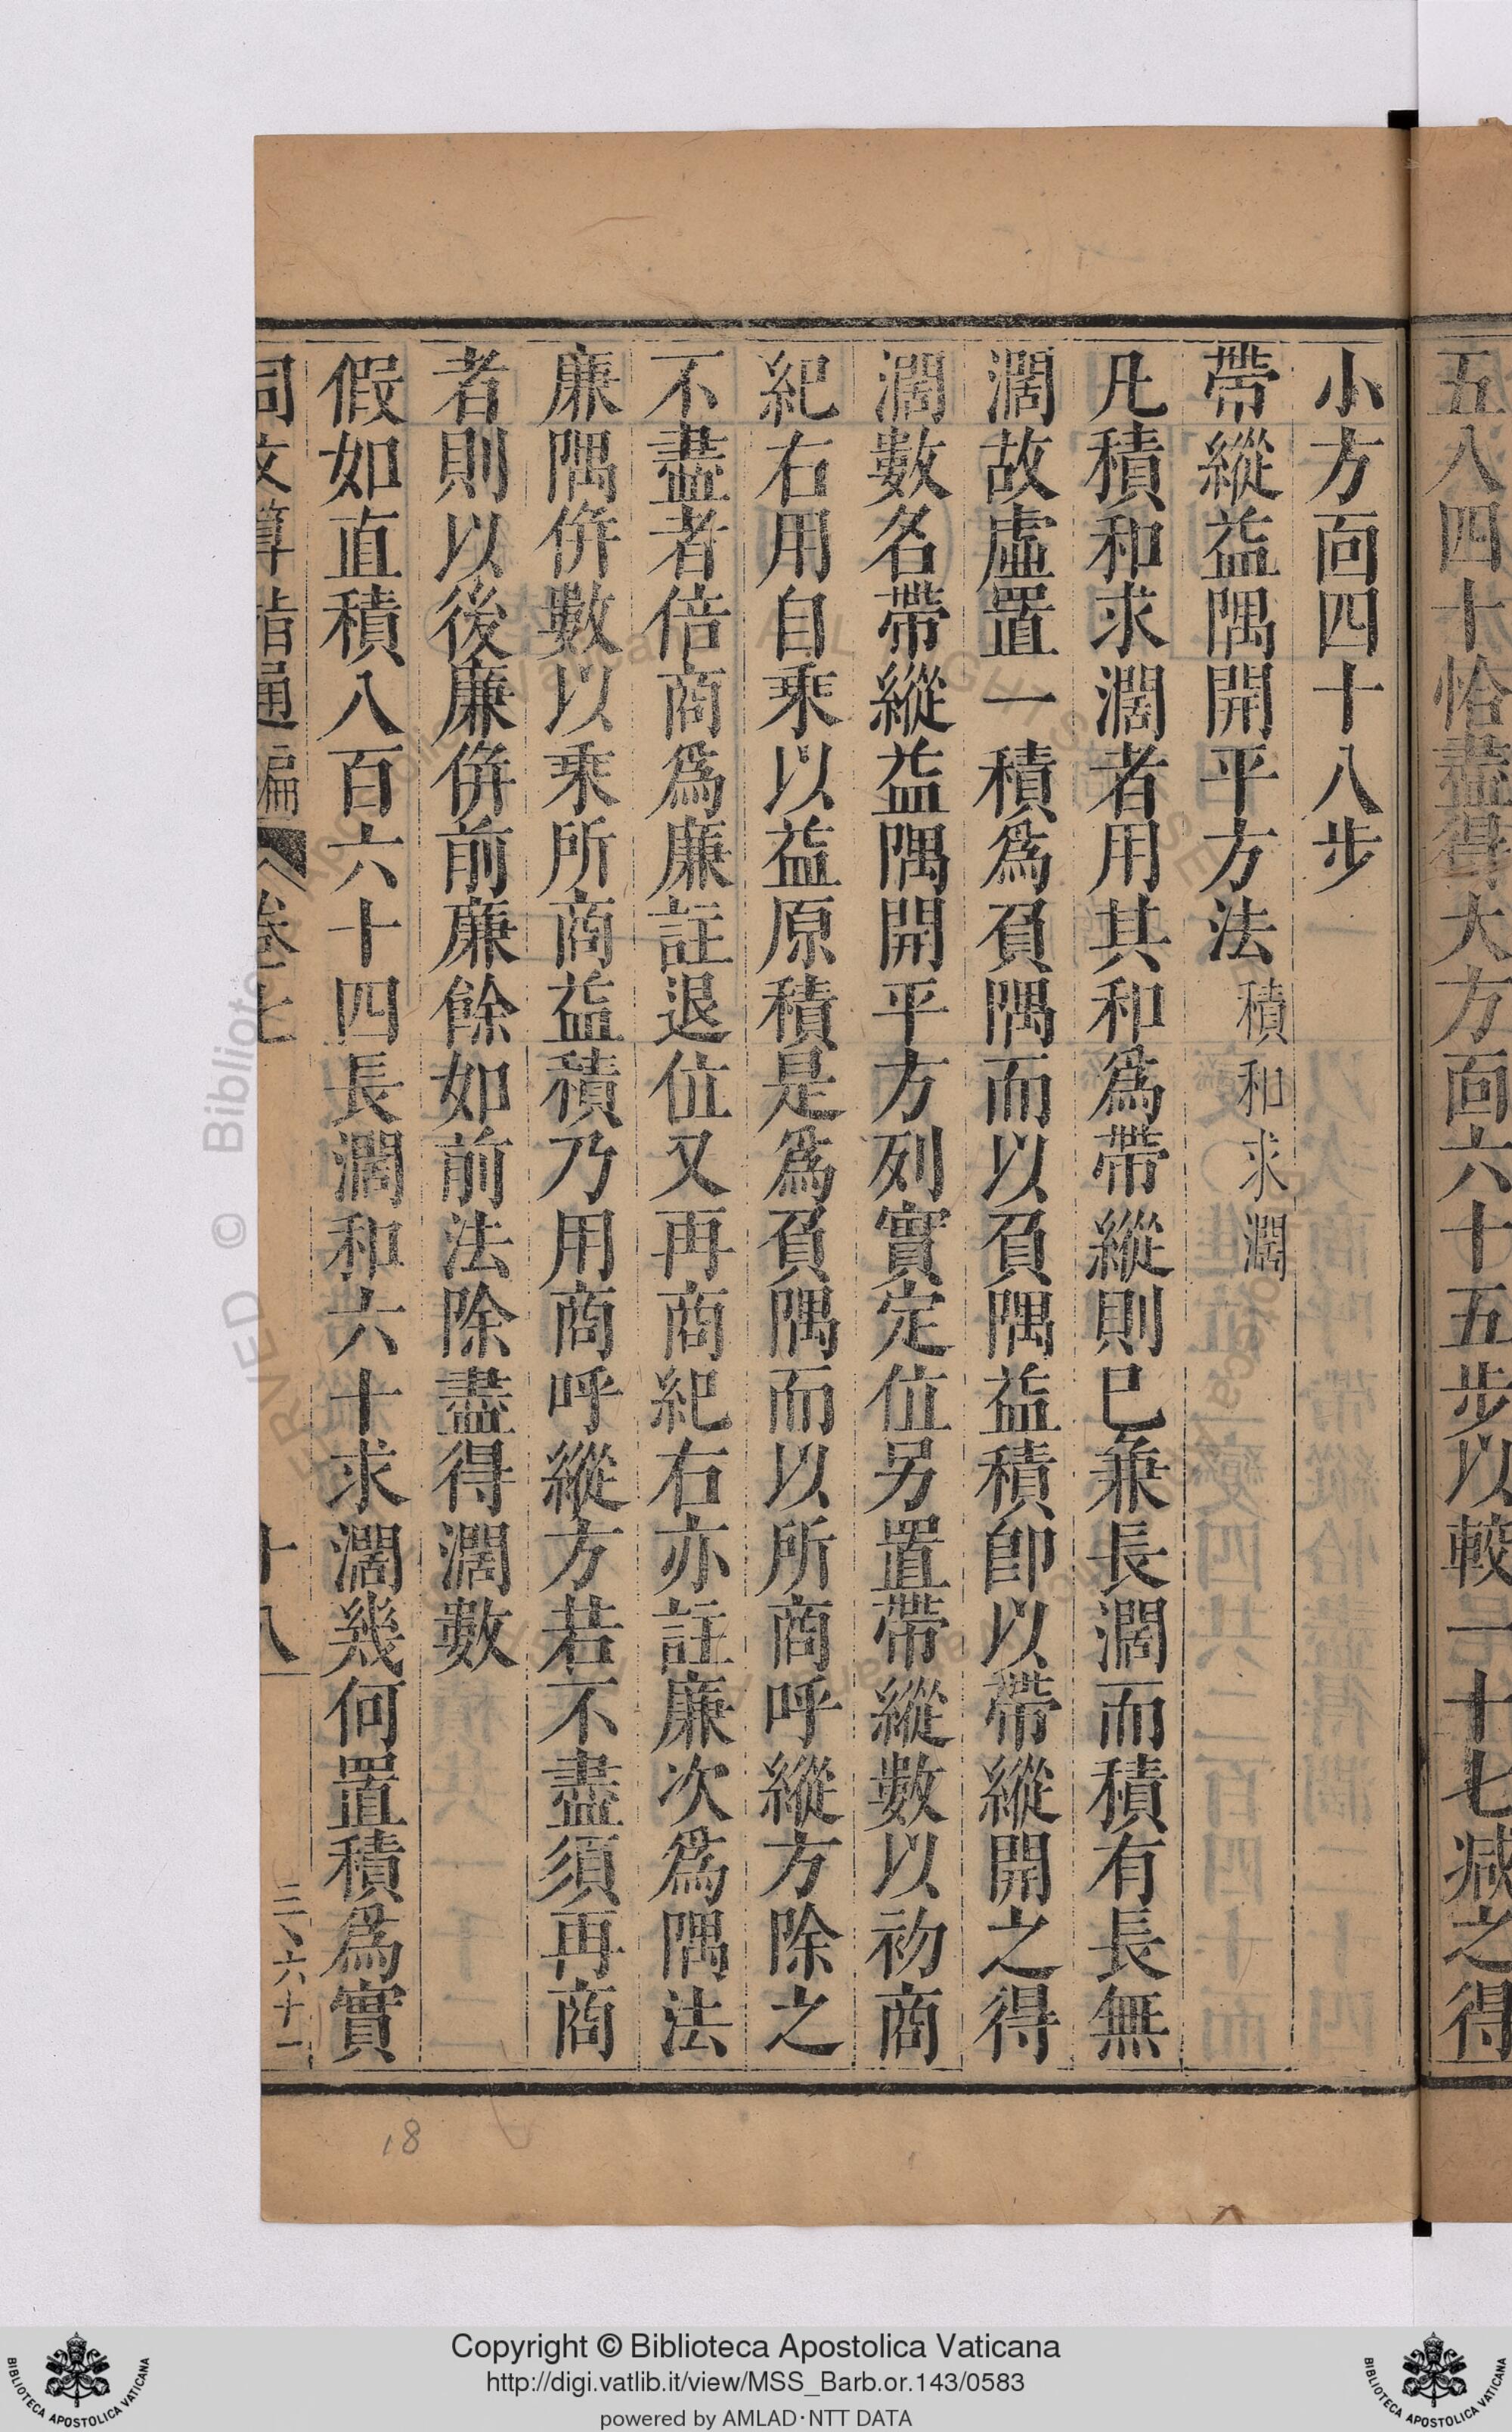 五八四十恰盡得大方面六十五步以較一十七减之得
小方面四十八步
帶縱益隅開平方法 積和求濶
凡積和求濶者用其和爲帶縱則已兼長濶而積有長無
濶故虛置一積爲負隅而以負隅益積即以帶縱開之得
濶數名帶縱益隅開平方列實定位另置帶縱數以初商
紀右用自乘以益原積是爲負隅而以所商呼縱方除之
不盡者倍商爲廉註退位又再商紀右亦註廉次爲隅法
廉隅併數以乘所商益積乃用商呼縱方若不盡須再商
者則以後廉併前廉餘如前法除盡得濶數
假如直積八百六十四長濶和六十求濶幾何置積爲實
同文算指通編 卷七 十八 三、六十一
18
© Biblioteca Apostolica Vaticana
Copyright © Biblioteca Apostolica Vaticana
http://digi.vatlib.it/view/MSS_Barb.or.143/0583
powered by AMLAD·NTT DATA
BIBLIOTECA APOSTOLICA VATICANA
BIBLIOTECA APOSTOLICA VATICANA